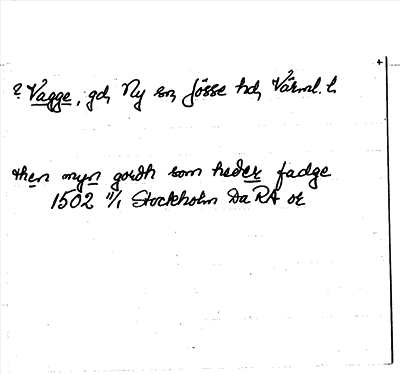 ? Vagge, gd, Ny sn, Jösse hd, Värml. l.
then myn gordh som heder fadge
1502 11/1 Stockholm Da RA or